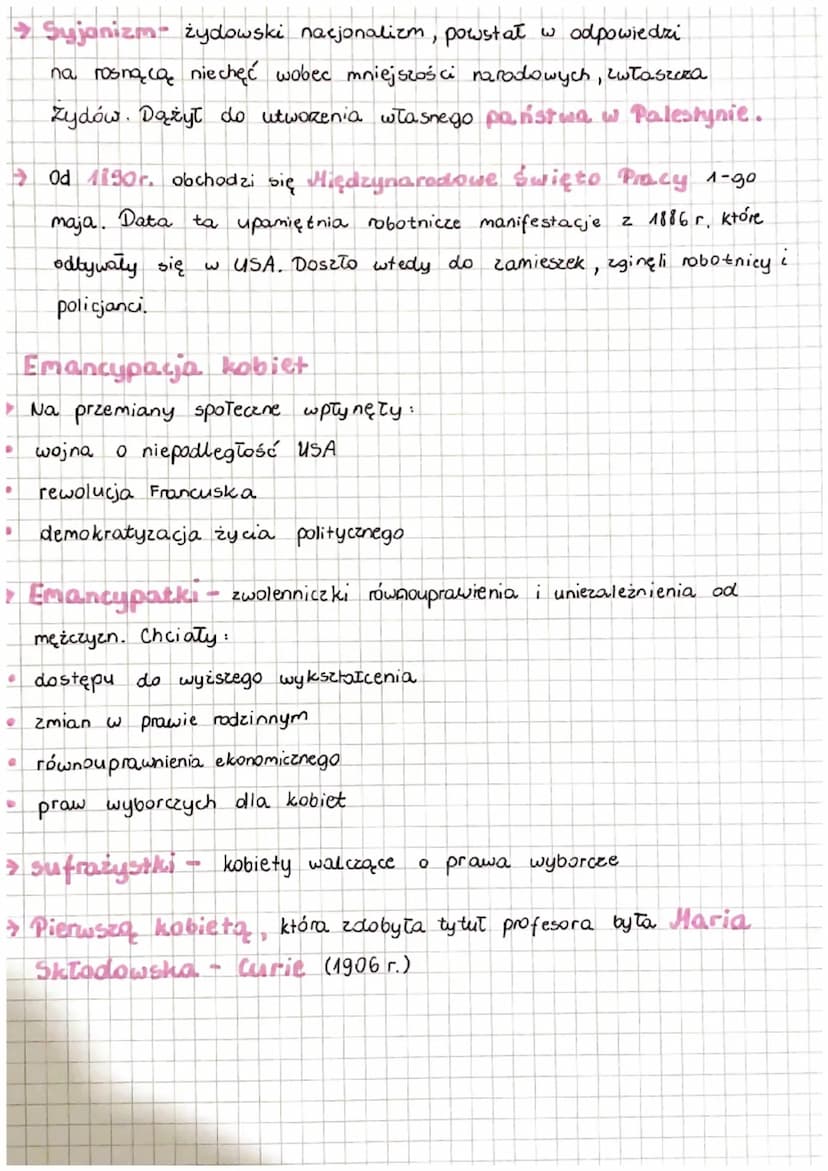 → Syjonizm - żydowski nacjonalizm, powstał w odpowiedzi
na rosnącą niechęć wobec mniejszości narodowych, zwłaszcza
Żydów. Dążył do utworzenia własnego państwa w Palestynie.
→ Od 1890r. obchodzi się Międzynarodowe Święto Pracy 1-go
maja. Data ta upamiętnia robotnicze manifestacje z 1886 r, które
odbywały się w USA. Doszło wtedy do zamieszek, zginęli robotnicy i
policjanci.
Emancypacja kobiet
Na przemiany społeczne wpłynęły:
• wojna o niepodległość USA
• rewolucja Francuska
• demokratyzacja życia politycznego
Emancypatki - zwolenniczki równouprawienia i uniezależnienia od
mężczyzn. Chciały:
• dostępu do wyższego wykształcenia
• zmian w prawie rodzinnym
• równouprawnienia ekonomicznego
• praw wyborczych dla kobiet
→ sufrażystki - kobiety walczące o prawa wyborcze
→ Pierwszą kobietą, która zdobyła tytuł profesora była Maria
Skłodowska - Curie (1906 r.)